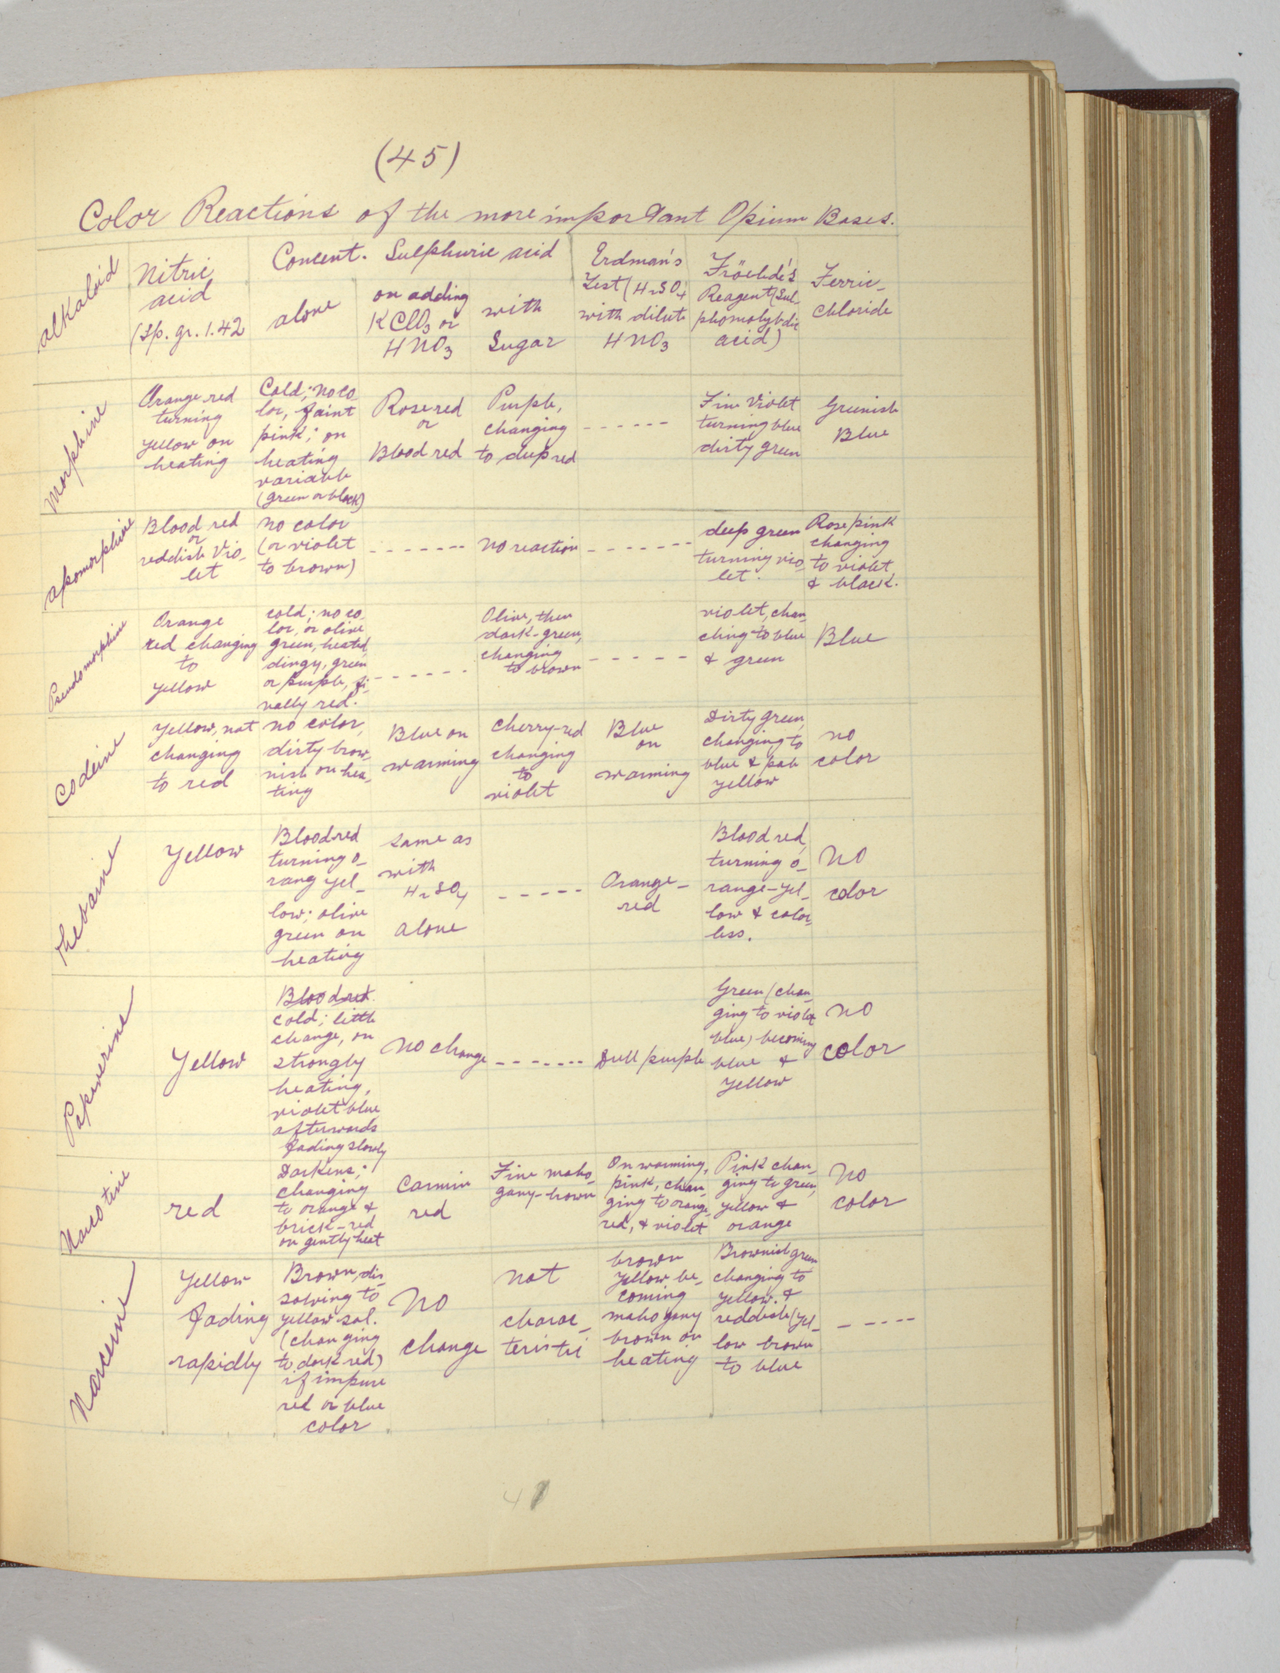 (45)
Color Reactions of the more important Opium Bases.
alkaloid
Nitric
acid
(sp. gr. 1.42
Concent. Sulphuric acid
alone
on adding
KClO3 or
HNO3
with
Sugar
Erdman's
Test (H2SO4
with dilute
HNO3
Fröehde's
Reagent (Sul-
phomolybdic
acid)
Ferric-
Chloride
Morphine
Orange red
turning
yellow on
heating
Cold; no co-
lor, faint
pink; on
heating
variable
(green or black)
Rose red
or
Blood red
Purple,
changing
to deep red
------
Fine Violet
turning blue
dirty green
Greenish
Blue
apomorphine
Blood red
or
reddish Vio-
let
no color
(or violet
to brown)
-------
no reaction
------
deep green
turning vio-
let.
Rose/pink
changing
to violet
& black.
Pseudomorphine
Orange
red changing
to
yellow
cold; no co-
lor, or olive
green, heated
dingy, green
or purple, fi-
nally red.
------
Olive, then
dark-green,
changing
to brown
------
violet, chan-
ching to blue
& green
Blue
Codeine
Yellow, not
changing
to red
no color,
dirty brow-
nish on hea-
ting
Blue on
warming
Cherry-red
changing
to
violet
Blue
on
warming
Dirty green,
changing to
blue & pale
yellow
no
color
thebaine
Yellow
Blood red
turning o-
rang yel-
low; olive
green on
heating
same as
with
H2SO4
alone
-----
Orange-
red
Blood red,
turning o-
range-yel-
low & color-
less.
no
color
Papaverine
Yellow
Blood red
cold; little
change, on
strongly
heating,
violet blue
afterwards
fading slowly
No change
-------
Dull purple
Green (chan-
ging to violet
blue) becoming
blue &
yellow
no
color
Narcotine
red
Darkens;
changing
to orange &
brick-red
on gently heat
Carmin
red
Fine maho-
gany-brown
On warming,
pink, chan-
ging to orange
red, & violet
Pink chan-
ging to green,
yellow &
orange
No
color
Narceine
Yellow
fading
rapidly
Brown, dis-
solving to
yellow sol.
(changing
to dark red)
if impure
red or blue
color
No
change
not
charac-
teristic
brown
yellow be-
coming
mahogany
brown on
heating
Brownish green
changing to
yellow. &
reddish (yel-
low brown
to blue
-----
41